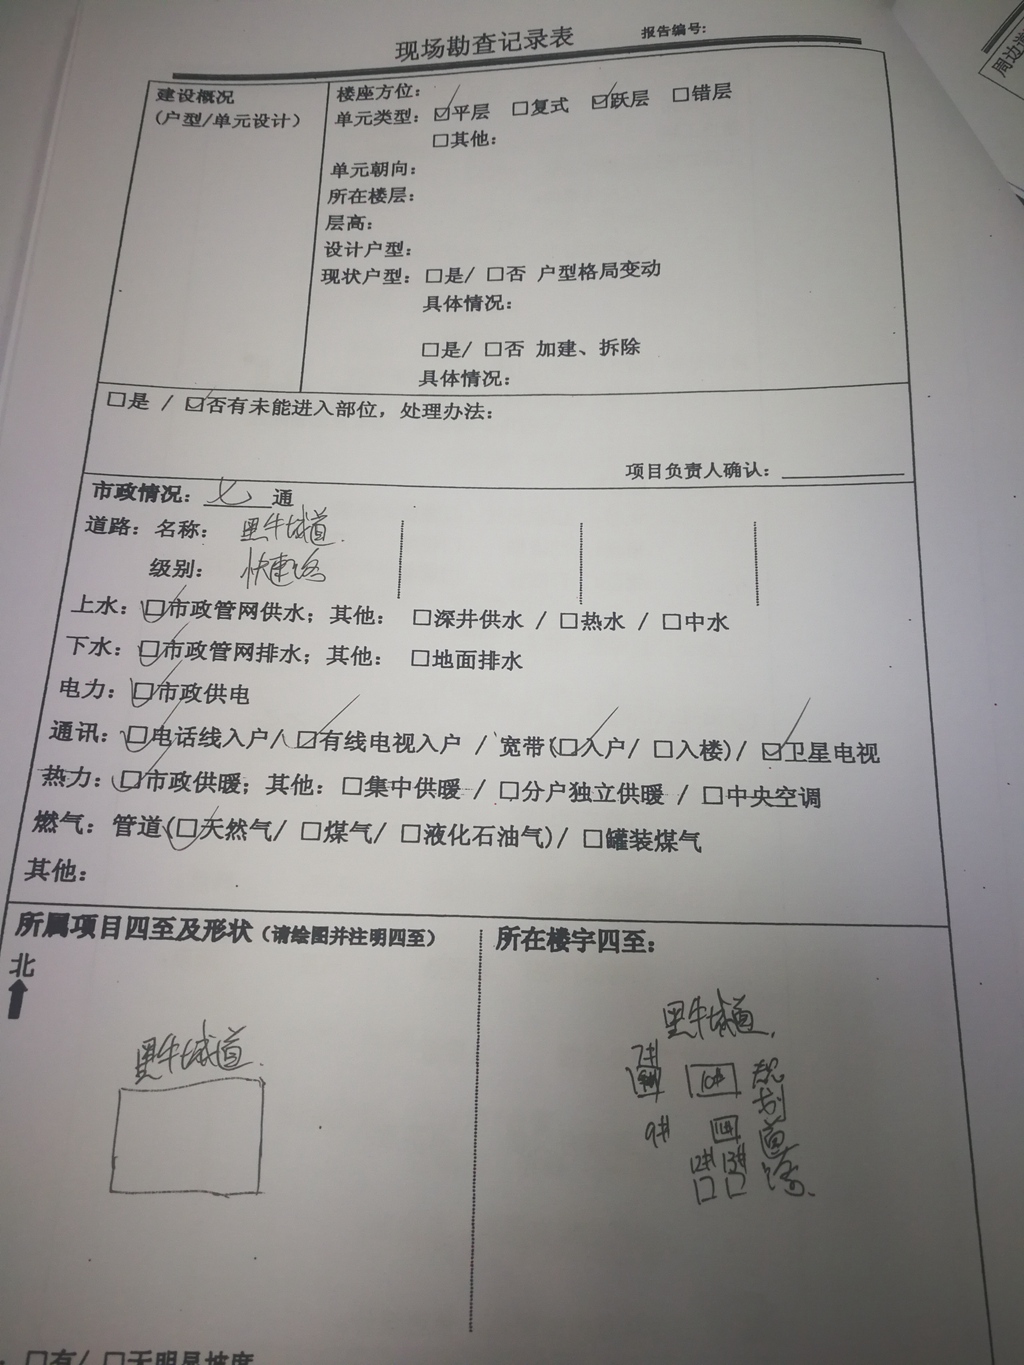 现场勘查记录表
报告编号:
周边道
建设概况
(户型/单元设计)
楼座方位:
单元类型: ☑平层 □复式 ☑跃层 □错层
□其他:
单元朝向:
所在楼层:
层高:
设计户型:
现状户型: □是/ □否 户型格局变动
具体情况:
□是/ □否 加建、拆除
具体情况:
□是 / ☑否有未能进入部位，处理办法:
项目负责人确认:
市政情况: 七 通
道路: 名称: 黑牛城道
级别: 快速路
上水: ☑市政管网供水; 其他: □深井供水 / □热水 / □中水
下水: ☑市政管网排水; 其他: □地面排水
电力: ☑市政供电
通讯: ☑电话线入户/ ☑有线电视入户 / 宽带(☑入户/ □入楼)/ ☑卫星电视
热力: ☑市政供暖; 其他: □集中供暖 / □分户独立供暖 / □中央空调
燃气: 管道(☑天然气/ □煤气/ □液化石油气)/ □罐装煤气
其他:
所属项目四至及形状(请绘图并注明四至)
北
黑牛城道
所在楼宇四至:
黑牛城道
7#
10#
9#
11#
12# 13#
规划道路
□有/ □无明显坡度